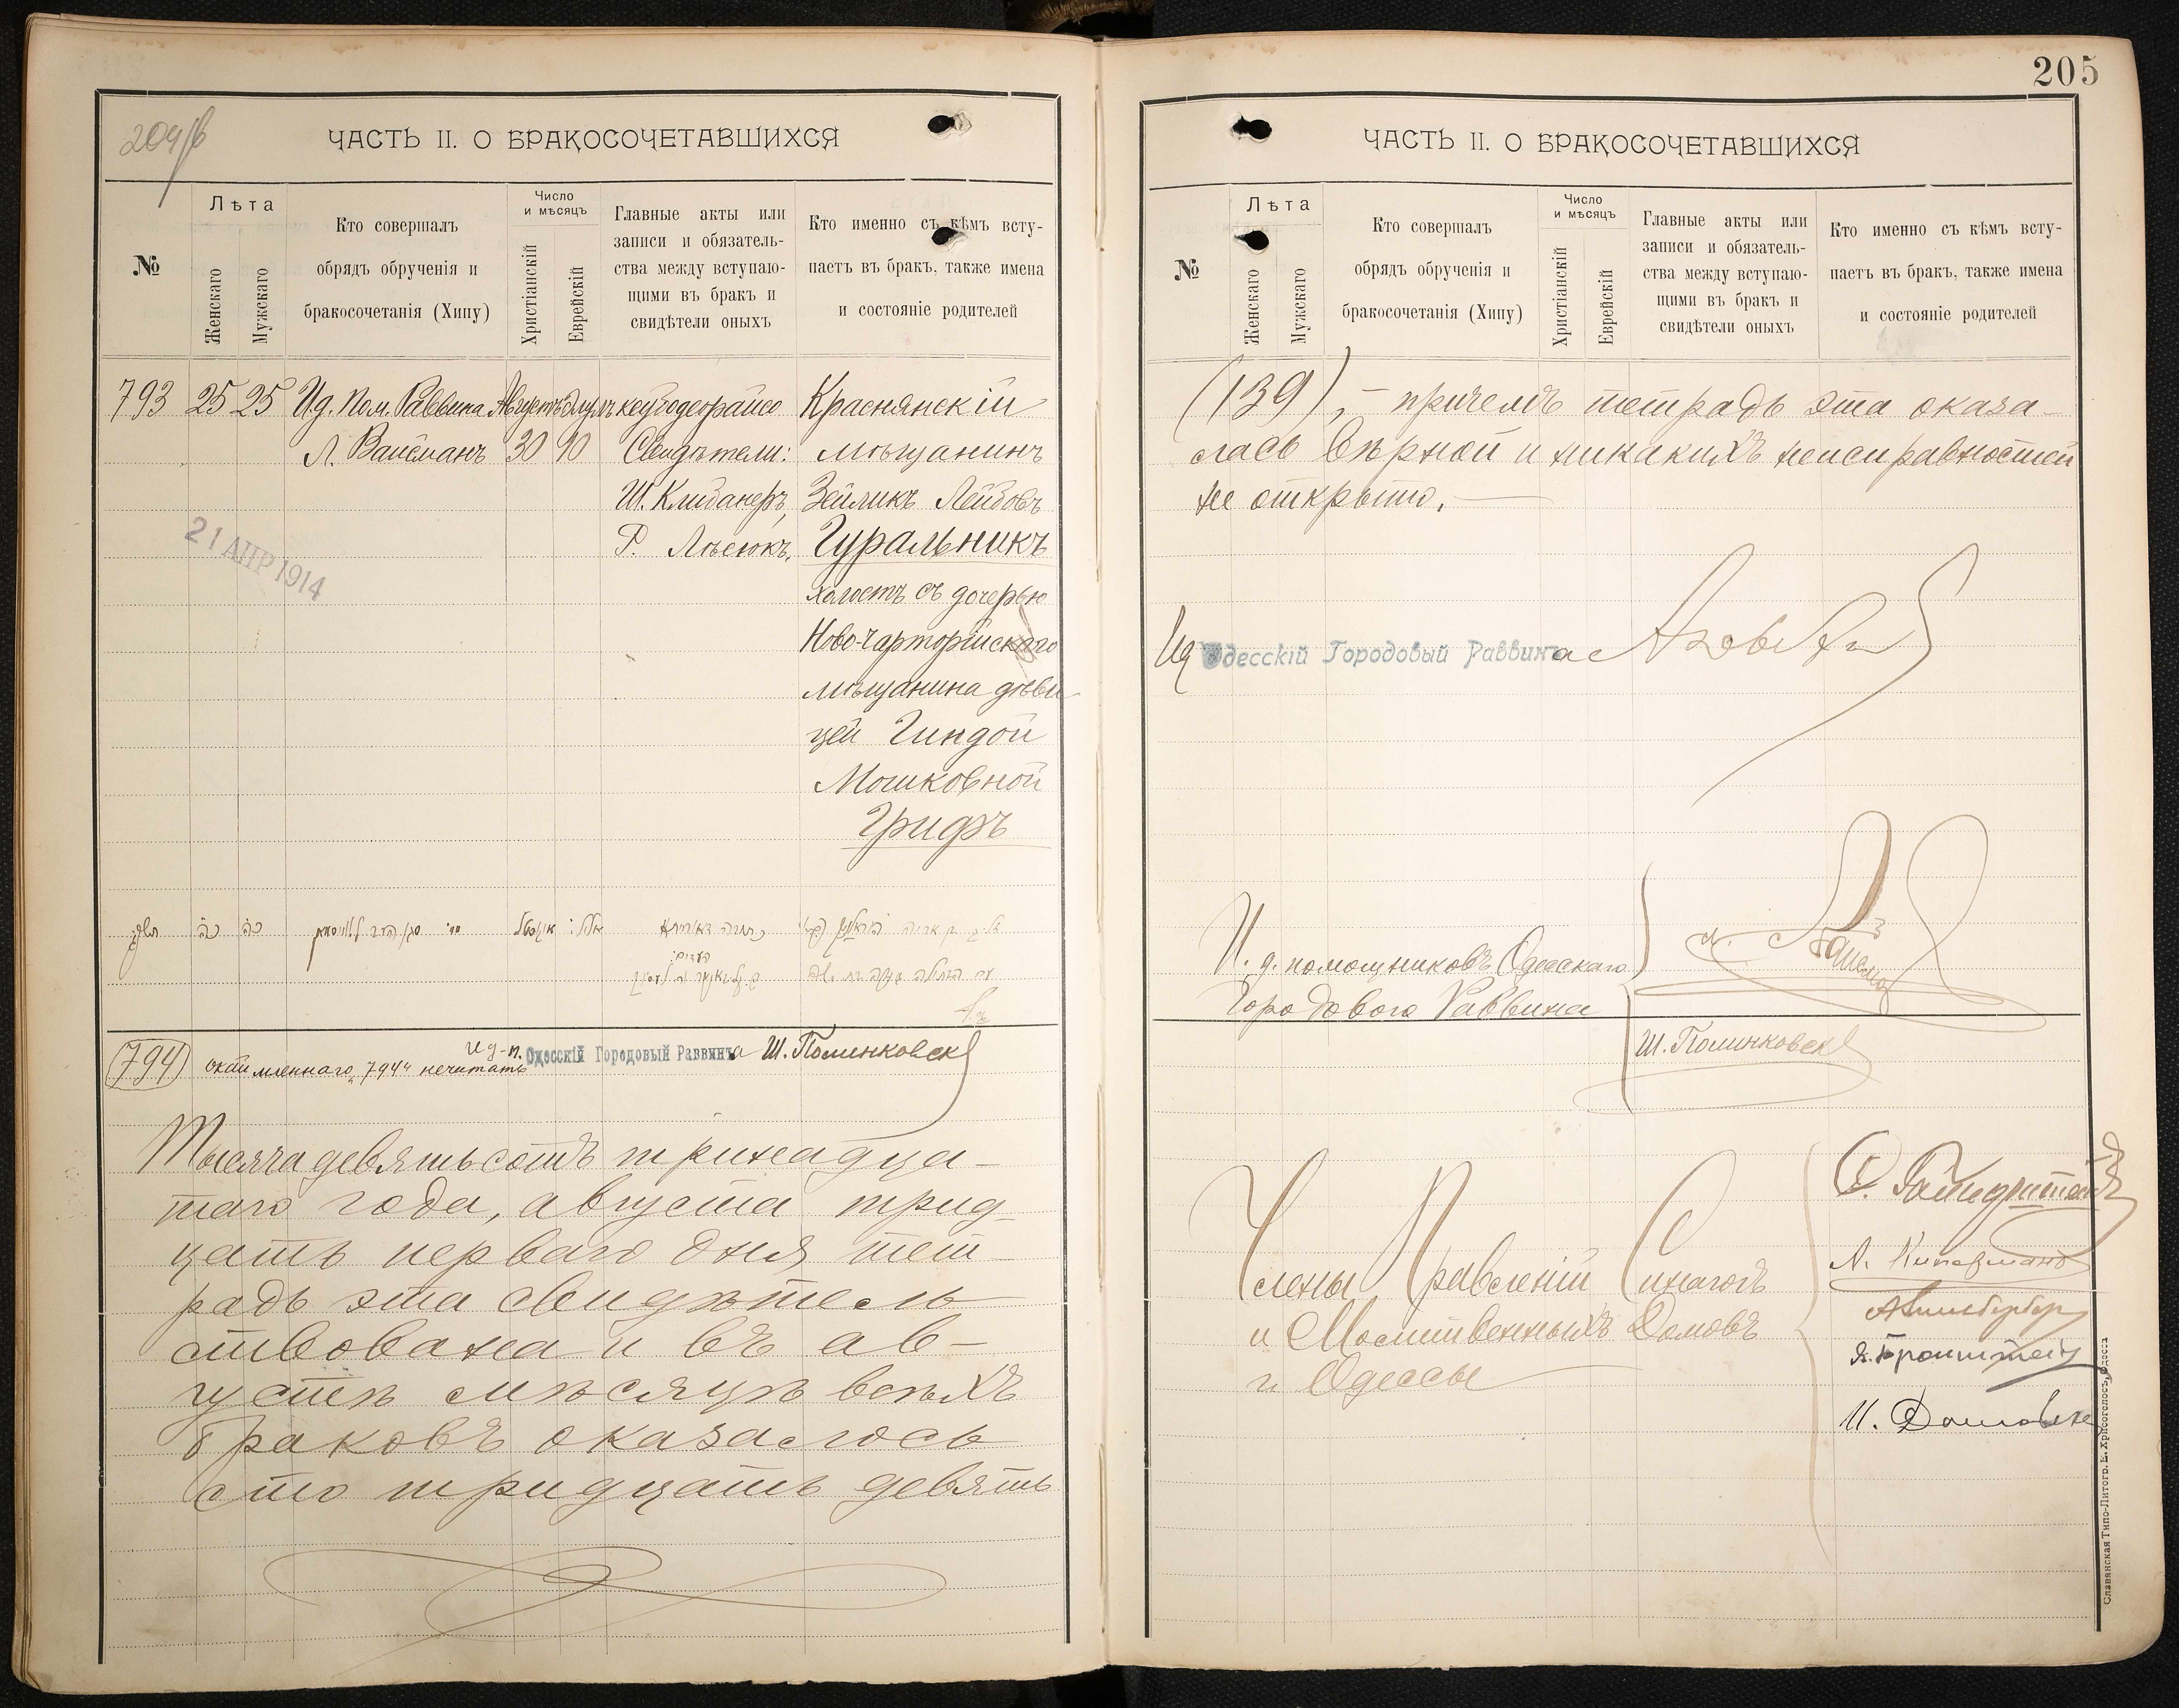 204/в
ЧАСТЬ II. О БРАКОСОЧЕТАВШИХСЯ
№
Лѣта
Женскаго
Мужскаго
Кто совершалъ
обрядъ обрученія и
бракосочетанія (Хипу)
Число
и мѣсяцъ
Христіанскій
Еврейскій
Главные акты или
записи и обязатель-
ства между вступаю-
щими въ бракъ и
свидѣтели оныхъ
Кто именно съ кѣмъ всту-
паетъ въ бракъ, также имена
и состояніе родителей
793 25 25 И.д. Пом. Раввина Августъ Элулъ Краснянскій
Л. Вайсманъ 30 10 Свидѣтели: мѣщанинъ
Ш. Клибанеръ, Зейликъ Лейбовъ
Р. Лѣсюкъ. Гуральникъ
21 АПР 1914
холостъ съ дочерью
Ново-Чарторійскаго
мѣщанина дѣви
цей Гиндой
Мошковной
Грифъ
794 окаймленнаго „794“ нечитать И д-п. Одесскій Городовый Раввинъа Ш. Полинковск
Тысяча девятьсотъ тринадца-
таго года, августа трид-
цать перваго дня тет-
радь эта свидѣтель-
ствована и въ ав-
густѣ мѣсяцѣ всѣхъ
браковъ оказалось
сто тридцать девять
205
ЧАСТЬ II. О БРАКОСОЧЕТАВШИХСЯ
№
Лѣта
Женскаго
Мужскаго
Кто совершалъ
обрядъ обрученія и
бракосочетанія (Хипу)
Число
и мѣсяцъ
Христіанскій
Еврейскій
Главные акты или
записи и обязатель-
ства между вступаю-
щими въ бракъ и
свидѣтели оныхъ
Кто именно съ кѣмъ всту-
паетъ въ бракъ, также имена
и состояніе родителей
(139), – причемъ тетрадь эта оказа-
лась вѣрной и никакихъ неисправностей
не открыто.
Ид Одесскій Городовый Раввинъа
И. д. помощниковъ Одесскаго
Городового Раввина
Ш. Полинковск
Члены Правленій Синагогъ
и Молитвенныхъ Домовъ
г. Одессы
Я. Бронштейн
Славянская Типо-Литогр. Е. Хрисогелосъ, Одесса